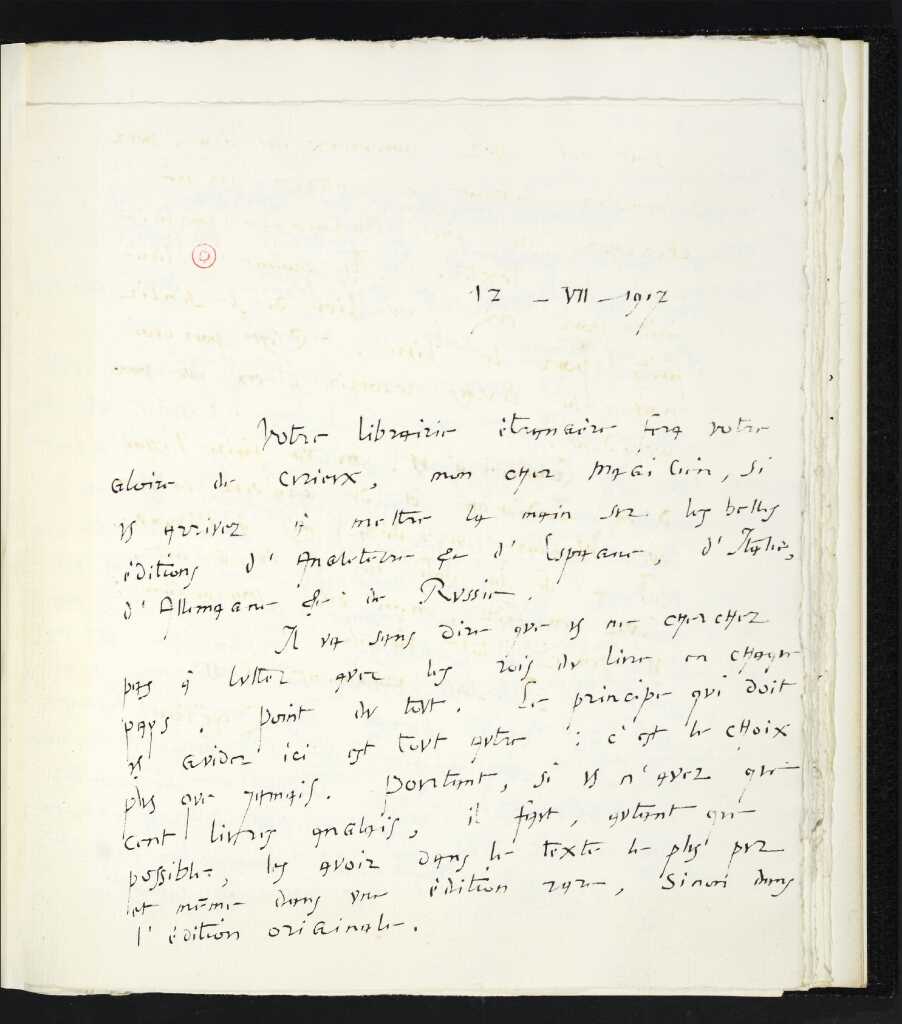 12 - VII - 1917
Votre librairie étrangère fera votre
gloire de curieux, mon cher magicien, si
vs arrivez à mettre la main sur les belles
éditions d'Angleterre & d'Espagne, d'Italie,
d'Allemagne & de Russie.
Il va sans dire que vs ne cherchez
pas à lutter avec les rois du livre en chaque
pays. Point du tout. Le principe qui doit
vs guider ici est tout autre : c'est le choix
plus que jamais. Pourtant, si vs n'avez que
cent livres anglais, il faut, autant que
possible, les avoir dans le texte le plus pur
et même dans une édition rare, sinon dans
l'édition originale.